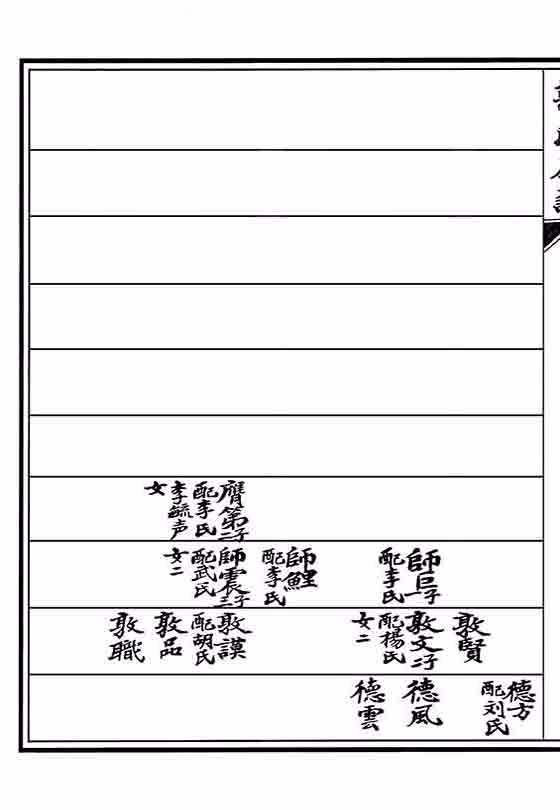 膺第二子
配李氏
李毓声
女
師巨一子
配李氏
師鯉
配李氏
師震三子
配武氏
女二
敦賢
敦文二子
配楊氏
女二
敦謨
配胡氏
敦品
敦職
德方
配刘氏
德風
德雲